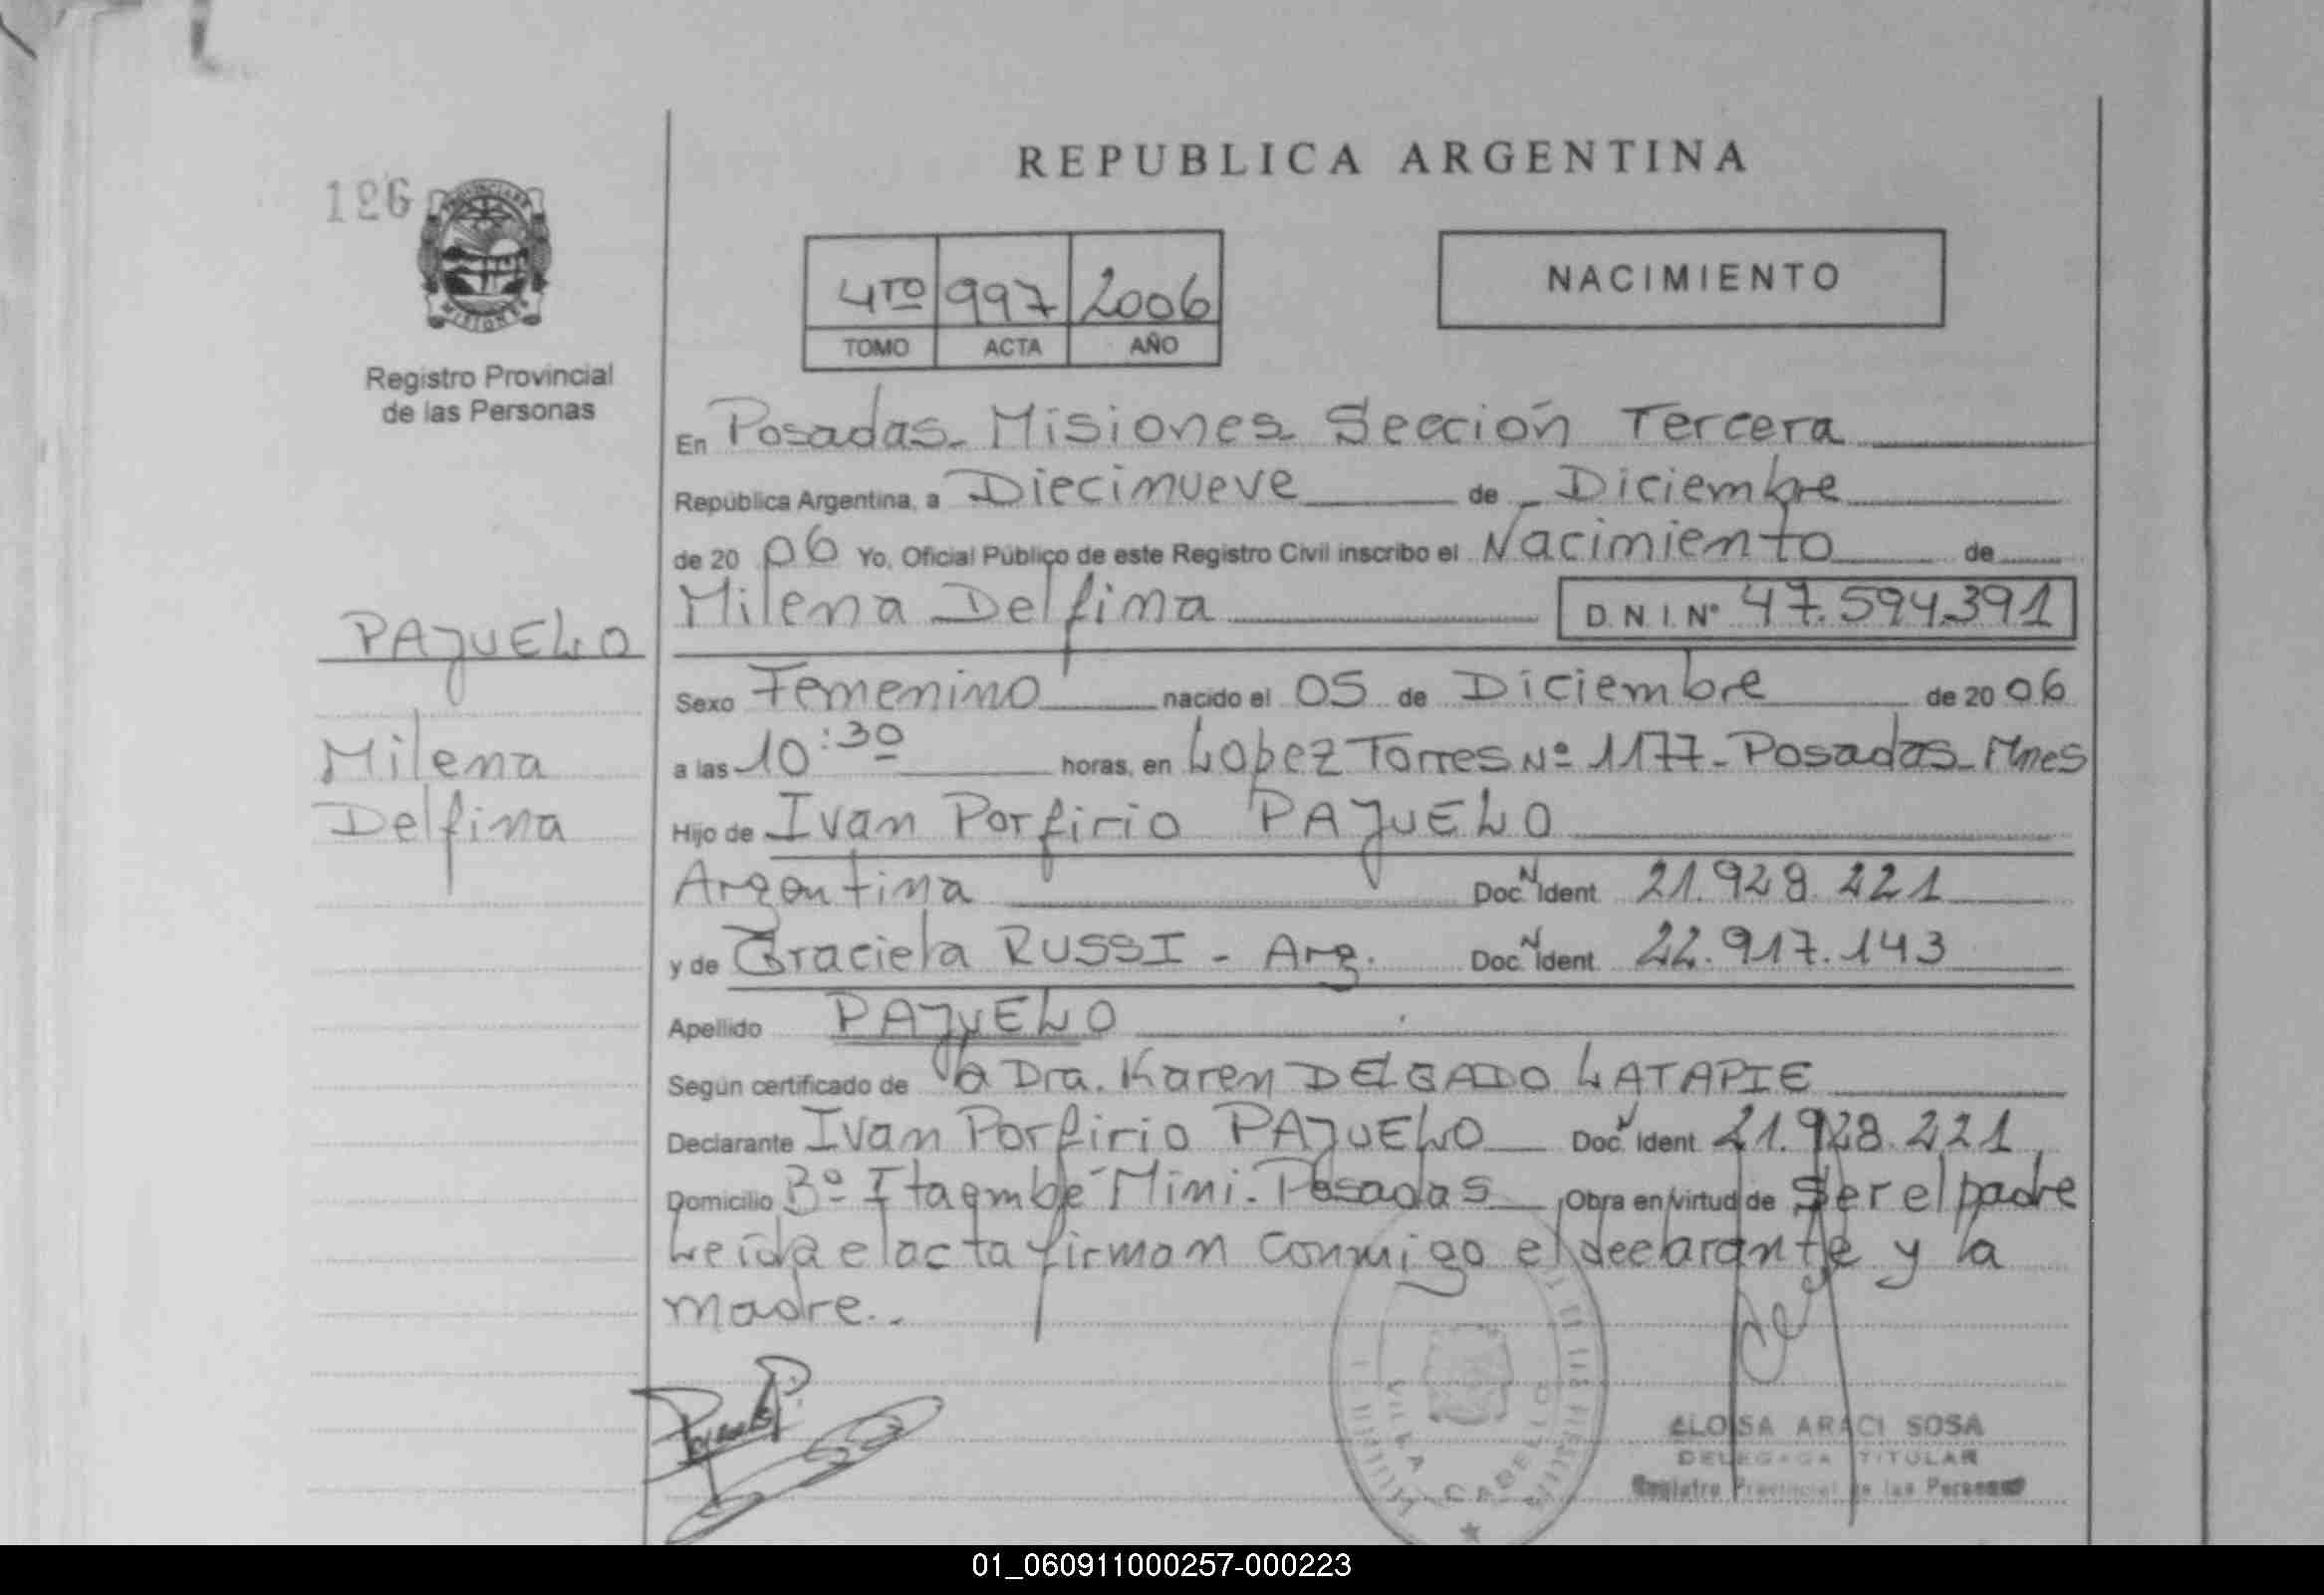 REPUBLICA ARGENTINA
126
NACIMIENTO
4TO 997 2006
TOMO ACTA AÑO
MISIONES
Registro Provincial
de las Personas
En Posadas - Misiones Sección Tercera
República Argentina, a Diecinueve de Diciembre
de 20 06 Yo, Oficial Público de este Registro Civil inscribo el Nacimiento de
Milena Delfina D.N.I. Nº 47.594.391
PAJUELO
Milena
Delfina
Sexo Femenino nacido el 05 de Diciembre de 20 06
a las 10:30 horas, en Lopez Torres Nº 1177 - Posadas - Mnes
Hijo de Ivan Porfirio PAJUELO
Argentina Doc. N Ident 21.928.221
y de Graciela RUSSI - Arg. Doc. N Ident. 22.917.143
Apellido PAJUELO
Según certificado de la Dra. Karen DELGADO LATAPIE
Declarante Ivan Porfirio PAJUELO Doc. N Ident 21.928.221
Domicilio Bº Itaembé Mini - Posadas Obra en virtud de Ser el padre
Leída el acta firman conmigo el declarante y la
madre..
VILLA CABELLO
ELOISA ARACI SOSA
DELEGADA TITULAR
Registro Provincial de las Personas
01_060911000257-000223